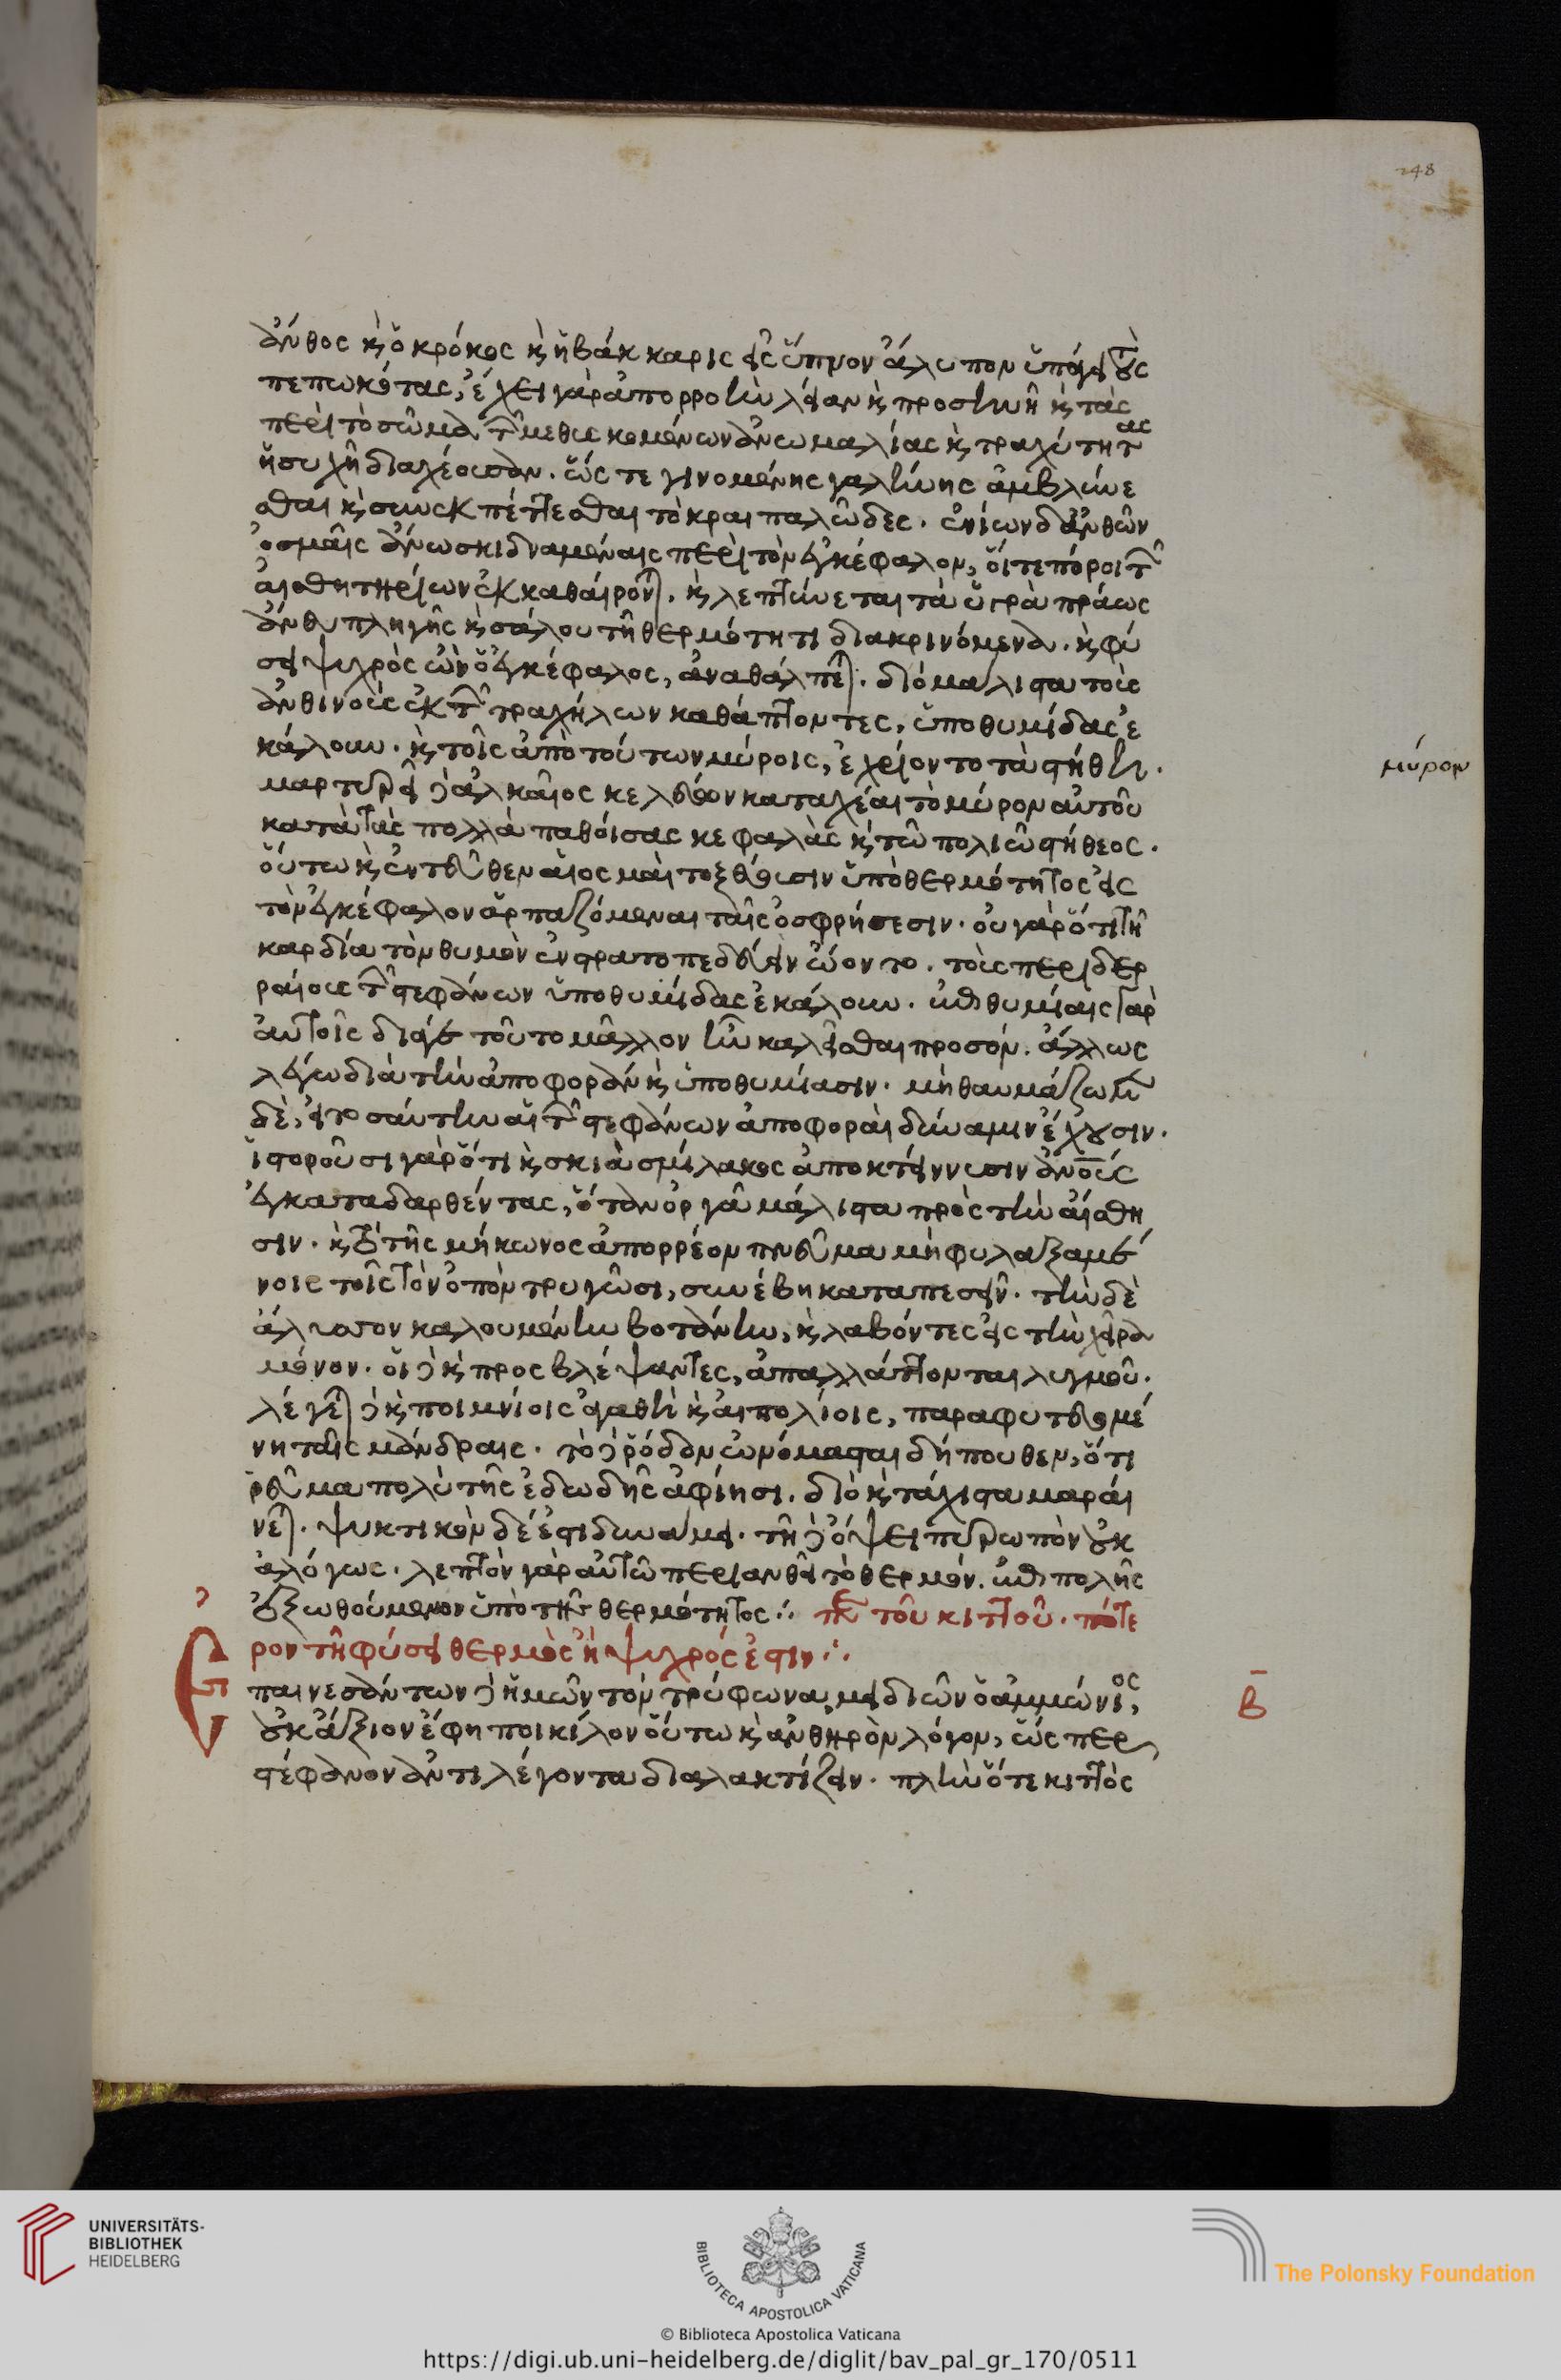 248
ἄνθος ϗ ὁ κρόκος ϗ ἡ βάκκαρις εἰς ὕπνον ἄλυπον ὑπάγει τοὺς
πεπωκότας, ἔχει γὰρ ἀπορροὴν λείαν ϗ προσηνῆ ϗ τὰς
περὶ τὸ σῶμα τῶν μεθυσκομένων ἀνωμαλίας ϗ τραχύτητας
ἡσυχῆ διαχέουσαν. ὥστε γινομένης γαλήνης ἀμβλύνε
σθαι ϗ συνεκπέττεσθαι τὸ κραιπαλῶδες. ἐνίων δ' ἀνθῶν
ὀσμαῖς ἄνω σκιδναμέναις περὶ τὸν ἐγκέφαλον, οἵ τε πόροι τῶν
αἰσθητηρίων ἐκκαθαίρονται. ϗ λεπτύνεται τὰ ὑγρὰ πράως
ἄνευ πληγῆς ϗ σάλου τῆ θερμότητι διακρινόμενα. ϗ φύ
σει ψυχρὸς ὢν ὁ ἐγκέφαλος, ἀναθάλπεται. διὸ μάλιστα τοὺς
ἀνθινοὺς ἐκ τῶν τραχήλων καθάπτοντες, ὑποθυμίδας ἐ
κάλουν. ϗ τοῖς ἀπὸ τούτων μύροις, ἐχρίοντο τὰ στήθη.
μύρον
μαρτυρεῖ δὲ ἀλκαῖος κελεύων καταχέαι τὸ μύρον αὐτοῦ
κατὰ τὰς πολλὰ παθοίσας κεφαλὰς ϗ τῶ πολιῶ στήθεος.
οὕτω ϗ ἐντεῦθεν αἱ ὀσμαὶ τοξεύουσιν ὑπὸ θερμότητος εἰς
τὸν ἐγκέφαλον ἁρπαζόμεναι ταῖς ὀσφρήσεσιν. οὐ γὰρ ὅτι τῆ
καρδία τὸν θυμὸν ἐνστρατοπεδεύειν ὤοντο. τοὺς περιδερ
ραίους τῶν στεφάνων ὑποθυμίδας ἐκάλουν. ἐπιθυμίαις γὰρ
αὐτοῖς διά γε τοῦτο μᾶλλον ἦν καλεῖσθαι προσόν. ἀλλ' ὡς
λέγω διὰ τὴν ἀποφορὰν ϗ ὑποθυμίασιν. μὴ θαυμάζωμεν
δὲ, εἰ τοσαύτην αἱ τῶν στεφάνων ἀποφοραὶ δύναμιν ἔχουσιν.
ἱστοροῦσι γὰρ ὅτι ϗ σκιὰ σμίλακος ἀποκτείννυσιν ἀνους
ἐγκαταδαρθέντας, ὅταν ὀργᾶ μάλιστα πρὸς τὴν αἴσθη
σιν. ϗ τὸ τῆς μήκωνος ἀπορρέον πνεῦμα μὴ φυλαξαμέ
νοις τοῖς τὸν ὀπὸν τρυγῶσι, συνέβη καταπεσεῖν. τὴν δὲ
ἄλυσσον καλουμένην βοτάνην, ϗ λαβόντες εἰς τὴν χεῖρα
μόνον. οἱ δὲ ϗ προσβλέψαντες, ἀπαλλάττονται λυγμοῦ.
λέγεται δὲ ϗ ποιμνίοις ἀγαθὴ ϗ αἰπολίοις, παραφυτευομέ
νη ταῖς μάνδραις. τὸ δὲ ῥόδον ὠνόμασται δήπουθεν, ὅτι
ῥεῦμα πολὺ τῆς ἐδωδῆς ἀφίησι. διὸ ϗ τάχιστα μαραί
νεται. ψυκτικὸν δέ ἐστι δυνάμει. τῆ δὲ ὄψει πυρωπὸν οὐκ
ἀλόγως. λεπτὸν γὰρ αὐτῶ περιανθεῖ τὸ θερμὸν. ἐπιπολῆς
ἐξωθούμενον ὑπὸ τῆς θερμότητος ∴ περὶ τοῦ κιττοῦ. πότε
ρον τῆ φύσει θερμὸς ἢ ψυχρός ἐστιν ∴
Ἐπαινεσάντων δὲ ἡμῶν τὸν τρύφωνα, μειδιῶν ὁ ἀμμώνιος,
Β̄
οὐκ ἄξιον ἔφη ποικίλον οὕτω ϗ ἀνθηρὸν λόγον, ὥσπερ
στέφανον ἀντιλέγοντα διαλακτίζειν. πλὴν ὅτε κιττὸς
UNIVERSITÄTS-
BIBLIOTHEK
HEIDELBERG
BIBLIOTECA APOSTOLICA VATICANA
The Polonsky Foundation
© Biblioteca Apostolica Vaticana
https://digi.ub.uni-heidelberg.de/diglit/bav_pal_gr_170/0511